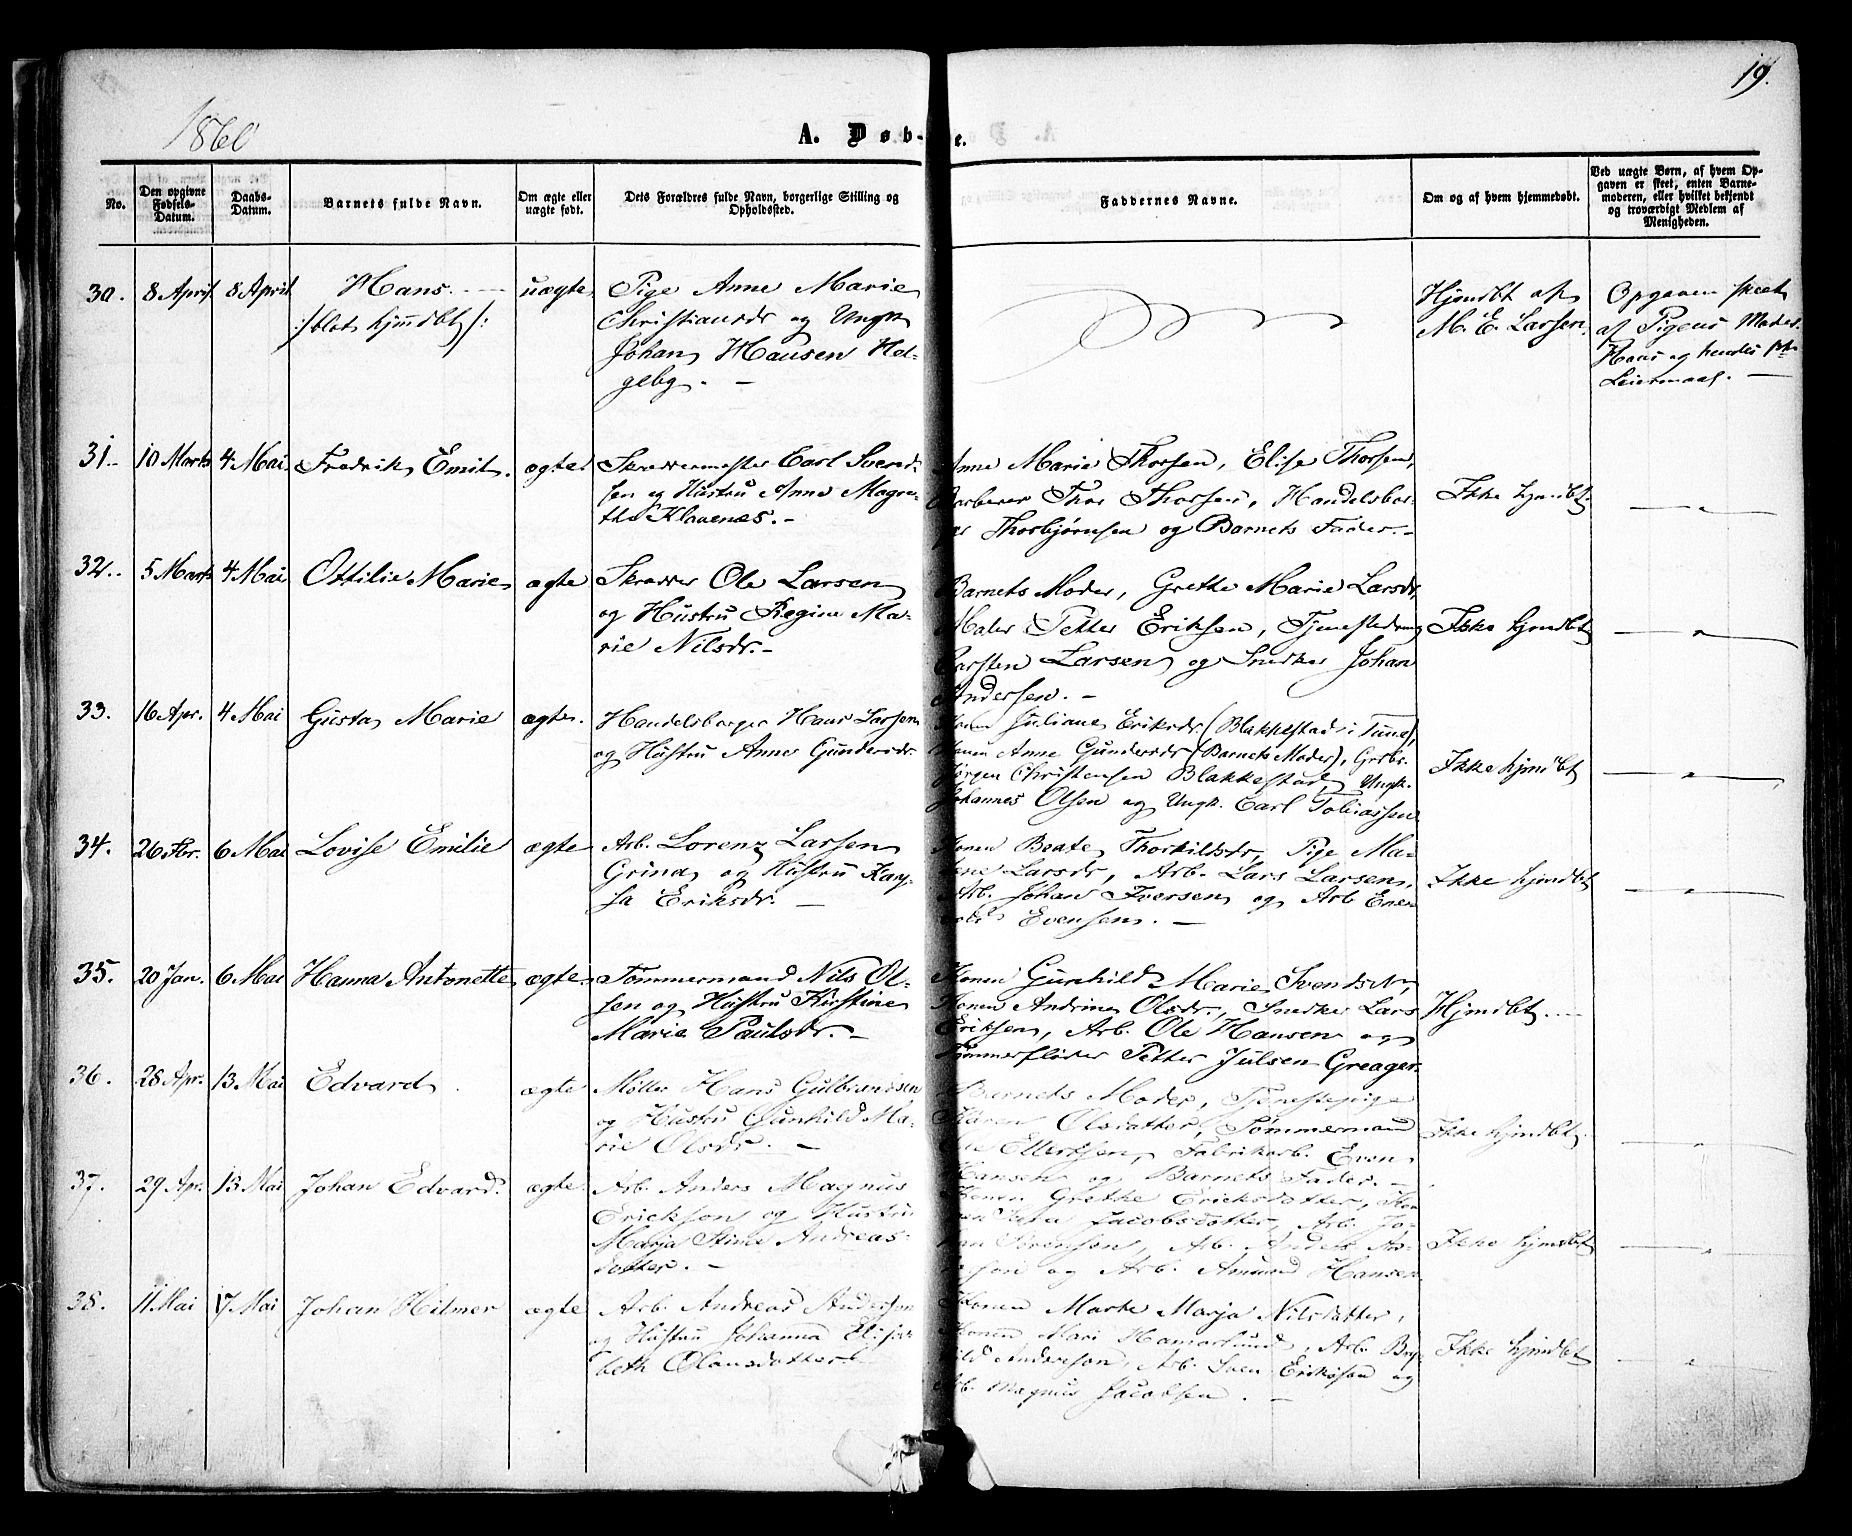 19.
1860
A. Døb- e.
No.
Den opgivne Fødsels-Datum.
Daabs-Datum.
Barnets fulde Navn.
Om ægte eller uægte født.
Dets Forældres fulde Navn, borgerlige Stilling og Opholdssted.
Faddernes Navne.
Om og af hvem hjemmedøbt.
Ved uægte Børn, af hvem Opgaven er skeet, enten Barnemoderen, eller hvilket bekjendt og troværdigt Medlem af Menigheden.
30. 8 April 8 April Hans. uægte
/: blot hjmdbt :/
Pige Anne Marie
Christiansdr og Ungk
Johan Hansen Hel-
gebg. -
Hjmdbt af
M. E. Larsen.
Opgaven skeet
af Pigens Moder.
Hans og hendes
Leiermaal. -
31. 10 Marts 4 Mai Fredrik Emil. ægte
Skræddermester Carl Svend-
sen og Hustru Anne Magre-
the Klavenæs. -
Anne Marie Thorsen, Elise Thorsen,
Barberer Thor Thorsen, Handelsbor-
ger Thorbjørnsen og Barnets Fader. -
Ikke hjmdbt
32. 5 Marts 4 Mai Ottilie Marie ægte
Skrædder Ole Larsen
og Hustru Regine Ma-
rie Nilsdr. -
Barnets Moder, Grethe Marie Larsdr,
Maler Petter Eriksen, Tjenestedreng
Carsten Larsen og Snedker Johan
Andersen. -
Ikke hjmdbt
33. 16 Apr. 4 Mai Gusta Marie ægte.
Handelsborger Hans Larsen
og Hustru Anne Gundersdr.
Konen Juliane Eriksdr. (Blakkestad i Tune),
Konen Anne Gundersdr (Barnets Moder), Grbr.
Jørgen Christensen Blakkestad, Ungk.
Johannes Olsen og Ungk. Carl Tobiassen
Ikke hjmdbt
34. 26 Fbr. 6 Mai Lovise Emilie ægte
Arb. Lorenz Larsen
Grina og Hustru Kay-
sa Eriksdr. -
Konen Beate Thorkildsdr, Pige Ma-
Larsdr, Arb. Lars Larsen,
Arb. Johan Iversen og Arb
Evensen. -
Ikke hjmdbt
35. 20 Jan. 6 Mai Hanna Antonette ægte
Tømmermand Nils Ol-
sen og Hustru Kirstine
Marie Paulsdr. -
Konen Gunhild Marie Svendsdr,
Konen Andrine Olsdr., Snedker Lars
Eriksen, Arb. Ole Hansen og
Tømmerfløder Petter Julsen Greager.
Hjmdbt
36. 28 Apr. 13 Mai Edvard ægte
Møller Hans Gulbrandsen
og Hustru Gunhild Ma-
rie Olsdr. -
Barnets Moder, Tjenestepige
Karen Olsdatter, Tømmermand
Ole Ellertsen, Fabrikarb. Even
Hansen og Barnets Fader. -
Ikke hjmdbt.
37. 29 Apr. 13 Mai Johan Edvard. ægte
Arb. Anders Magnus
Erickson og Hustru
Marja Stina Andreas-
dotter. -
Konen Grethe Ericksdotter, Ko-
nen Jacobsdotter, Arb. Jo-
han Sørensen, Arb. Anders
og Arb. Amund Hansen
Ikke hjmdbt
38. 11 Mai 17 Mai Johan Hilmer ægte
Arb. Andreas Anderson
og Hustru Johanna Elisa-
beth Olausdotter
Konen Marte Marja Nilsdatter,
Konen Mari Hamarlund, Arb.
Anderson, Arb. Sven Erikson og
Arb. Magnus Jacobsen. -
Ikke hjmdbt